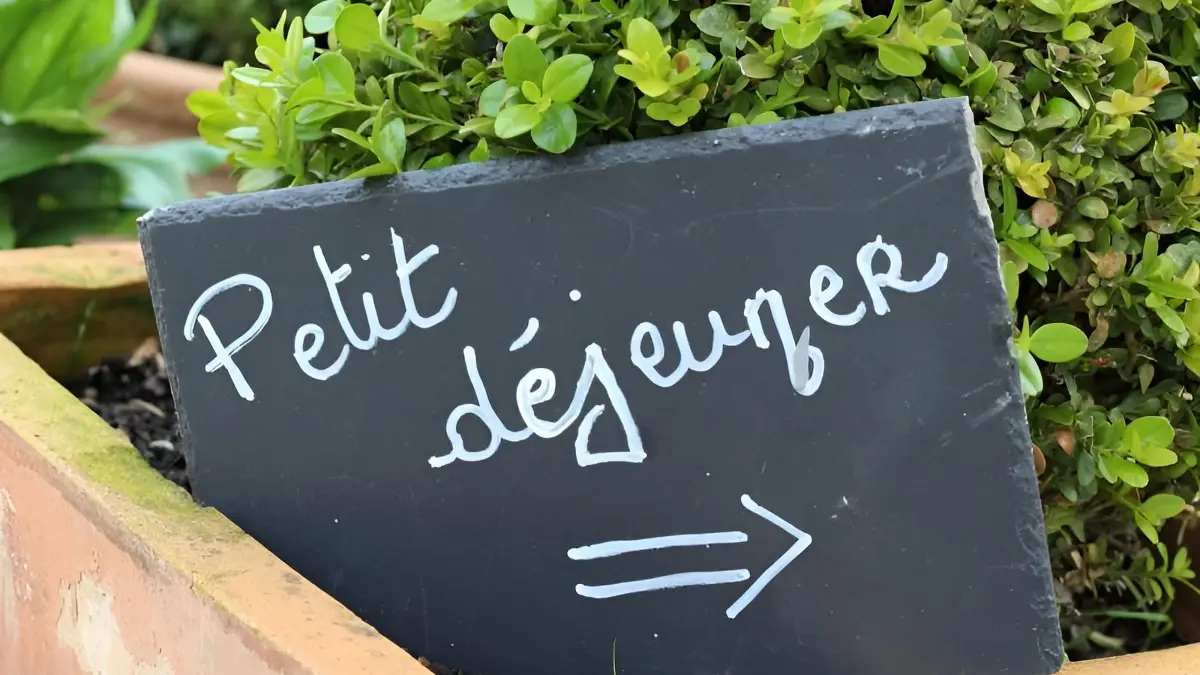 Petit
déjeuner
⇒